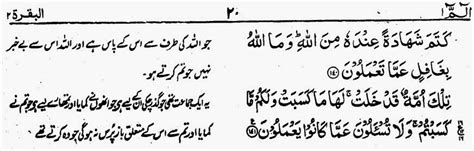 الٓمّٓ
٢٠
البقرة ٢
كَتَمَ شَهَادَةً عِنْدَهٗ مِنَ اللّٰهِ وَمَا اللّٰهُ
بِغَافِلٍ عَمَّا تَعْمَلُوْنَ
تِلْكَ اُمَّةٌ قَدْ خَلَتْ لَهَا مَا كَسَبَتْ وَلَكُمْ مَّا
كَسَبْتُمْ وَلَا تُسْئَلُوْنَ عَمَّا كَانُوْا يَعْمَلُوْنَ
جو اللہ کی طرف سے اس کے پاس ہے اور اللہ اس سے بے خبر
نہیں جو تم کرتے ہو۔
یہ ایک جماعت تھی جو گزر چکی ان کے لیے ہے جو انھوں نے کمایا اور تمھارے لیے ہے جو تم نے
کمایا اور تم سے اس کے متعلق باز پرس نہ ہو گی جو وہ کرتے تھے